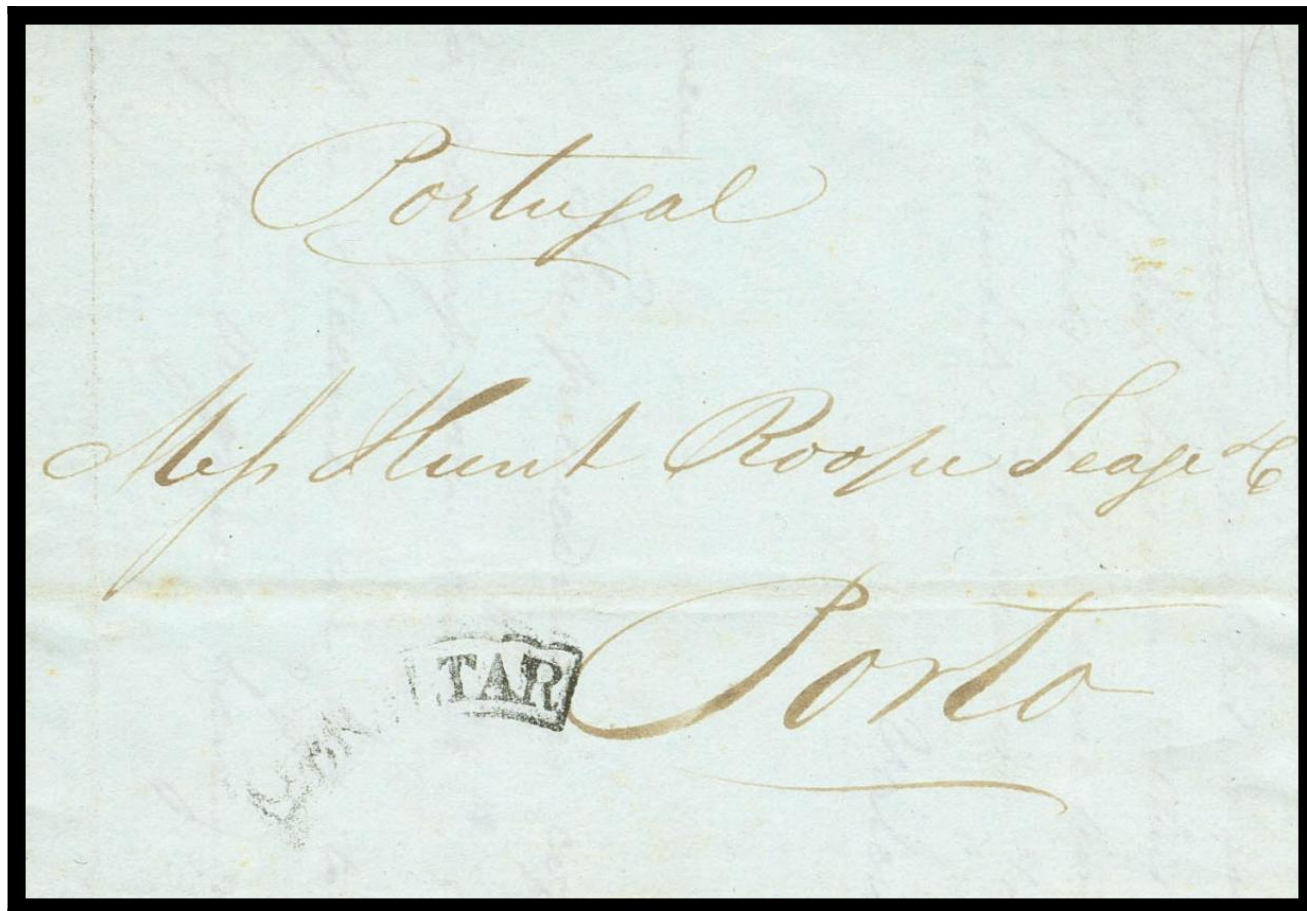 Portugal
Mess Hunt Roope Teage & C
Porto
TAR